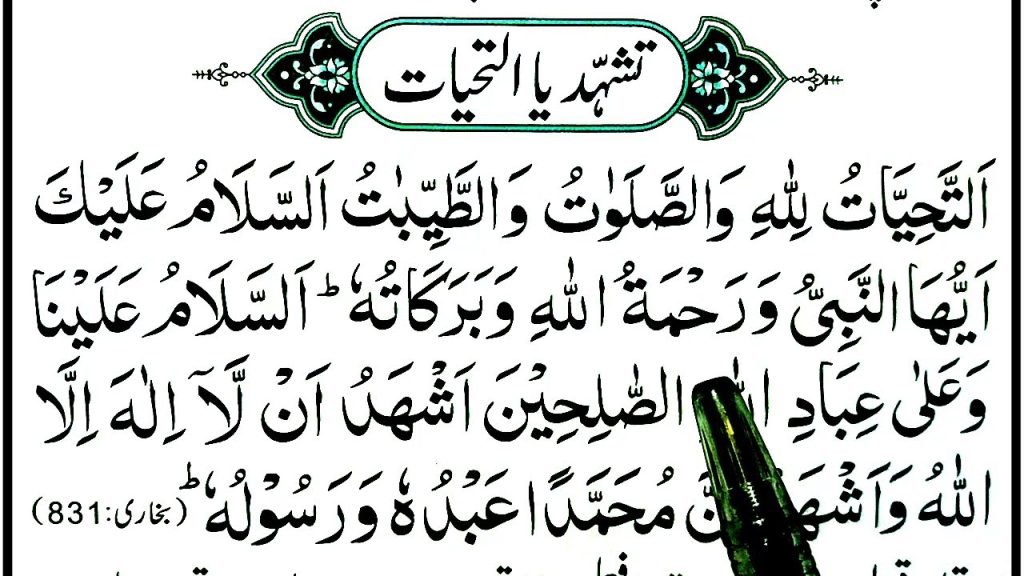 تشہّد یا التحیات
اَلتَّحِیَّاتُ لِلّٰهِ وَالصَّلَوٰتُ وَالطَّیِّبٰتُ اَلسَّلَامُ عَلَیْكَ
اَیُّهَا النَّبِیُّ وَرَحْمَةُ اللّٰهِ وَبَرَكَاتُهٗ ؕ اَلسَّلَامُ عَلَیْنَا
وَعَلٰی عِبَادِ الصّٰلِحِیْنَ اَشْهَدُ اَنْ لَّآ اِلٰهَ اِلَّا
اللّٰهُ وَاَشْهَ مُحَمَّدًا عَبْدُهٗ وَرَسُوْلُهٗ ؕ (بخاری:831)